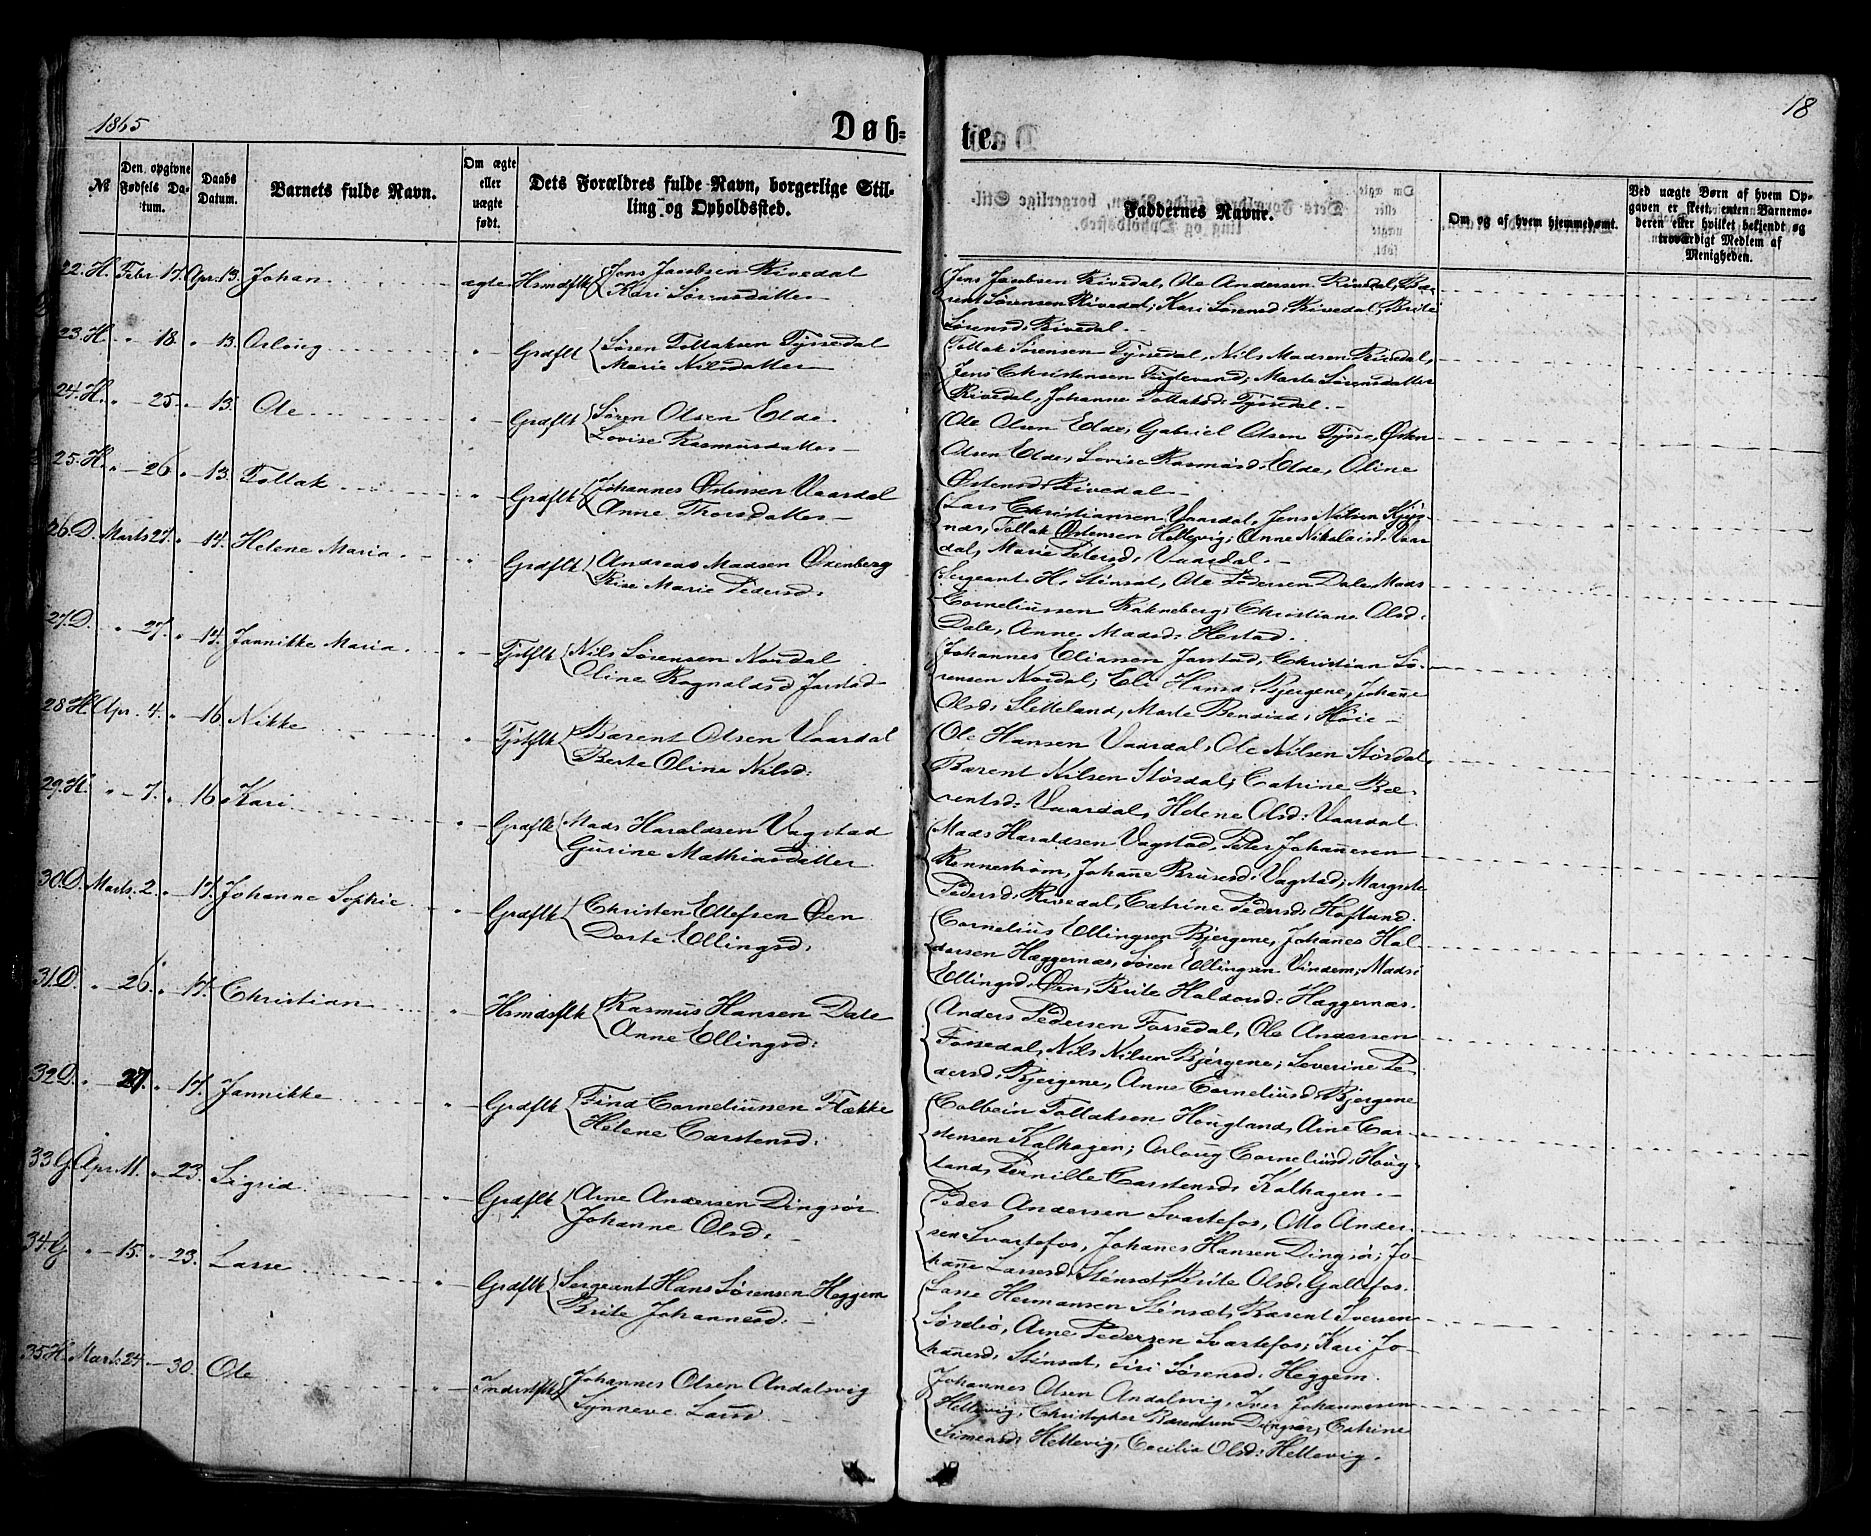 1865
Døb=
te.
18
№
Den opgivne Fødsels Datum.
Daabs Datum.
Barnets fulde Navn.
Om ægte eller uægte født.
Dets Forældres fulde Navn, borgerlige Stilling og Opholdssted.
Faddernes Navne.
Om og af hvem hjemmedøbt.
Ved uægte Børn af hvem Opgaven er skeet, enten Barnemoderen eller hvilket bekjendt og troværdigt Medlem af Menigheden.
22. H. Febr. 17. Apr. 13. Johan ægte Hsmdflk Jens Jacobsen Rivedal
Kari Sørensdatter
Jens Jacobsen Rivedal, Ole Andersen Rivedal, Bæ-
rent Sørensen Rivedal, Kari Sørensd: Rivedal, Brite
Sørensd: Rivedal.
23. H. " 18. " 13. Oslaug " Grdflk Søren Tollaksen Tyssedal
Marie Nilsdatter
Tollak Sørensen Tyssedal, Nils Madsen Rivedal,
Jens Christensen Fuglevand, Marte Sørensdatter
Rivedal, Johanne Tollaksd: Tyssedal.
24. H. " 25. " 13. Ole " Grdflk Søren Olsen Elde
Lovise Rasmusdatter
Ole Olsen Elde, Gabriel Olsen Tysse, Østen
Olsen Elde, Lovise Rasmusd: Elde, Oline
Østensd: Rivedal
25. H. " 26 " 13. Tollak " Grdflk Johannes Østensen Vaardal
Anne Thorsdatter
Lars Christiansen Vaardal, Jens Nilsen
Tollak Østensen Hellevig, Anne Nikolaisd: Vaar-
dal, Marie Petersd: Vaardal.
26. D. Marts 27. " 17. Helene Maria " Grdflk Andreas Madsen Ødenberg
Marie Pedersd:
Sergeant H. Stensæt, Ole Pedersen Dale, Mads
Corneliussen Rakneberg, Christiane Olsd:
Dale, Anne Madsd: Hestad.
27. D. " 27. " 17. Jannikke Maria " Tjstflk Nils Sørensen Nordal
Oline Ragnaldsd Jarstad
Johannes Eliassen Jarstad, Christian Sø-
rensen Nordal, Eli Hansd: Bjergene, Johañe
Olsd: Sletteland, Marte Bendixd: Høie
28. H. Apr. 4. " 16 Nikke " Tjstflk Bærent Olsen Vaardal
Berte Oline Nilsd:
Ole Hansen Vaardal, Ole Nilsen Størdal,
Bærent Nilsen Størdal, Catrine Bæ-
rentsd: Vaardal, Helene Olsd: Vaardal.
29. H. " 7. " 16 Kari " Grdflk Mads Haraldsen Vagstad
Gurine Mathiasdatter
Mads Haraldsen Vagstad, Peter Johannesen
Rennestrøm, Johañe Brusesd: Vagstad, Margrete
Pedersd: Rivedal, Catrine Pedersd: Hoflund.
30. D. Marts. 2. " 17. Johanne Sophie " Grdflk Christen Ellefsen Øen
Dorte Ellingsd:
Cornelius Ellingsen Bjergene, Johañes Hal-
dorsen Hæggernæs, Søren Ellingsen Vindem,
Ellingsd: Øen, Brite Haldorsd: Hæggernæs.
31. D. " 26. " 17. Christian " Hsmdsflk Rasmus Hansen Dale
Anne Ellingsd:
Anders Pedersen Fossedal, Ole Andersen
Fossedal, Nils Nilsen Bjergene, Severine Pe-
dersd: Bjergene, Anne Corneliusd: Bjergene
32. D. " 27. " 17. Jannikke " Grdflk Find Corneliussen Flekke
Helene Carstensd:
Colbein Tollaksen Hougland, Arne Car-
stensen Kalhagen, Oslaug Corneliusd: Houg-
land, Pernille Carstensd: Kalhagen.
33. G. Apr. 11. " 23. Sigrid " Grdflk Arne Andersen Dingsør
Johanne Olsd:
Peder Andersen Svartefos, Otto Ander-
sen Svartefos, Johanes Hansen Dingsør, Jo-
hañe Larsesd: Stensæt, Brite Olsd: Gallefos.
34. G " 15. " 23. Lasse " Grdflk Sergeant Hans Sørensen Heggem
Brite Johannesd:
Lasse Hermansen Stensæt, Bærent Iversen
Sørebø, Arne Pedersen Svartefos, Kari Jo-
hañesd: Stensæt, Siri Sørensd: Heggem.
35. H. Marts. 24. " 30. Ole " Inderstflk Johannes Olsen Andalsvig
Synneve Larsd
Johannes Olsen Andalsvig, Iver Johannesen
Hellevig, Christopher Bærentsen Dingsør, Catrine
Simensd: Hellevig, Cecilia Olsd: Hellevig.